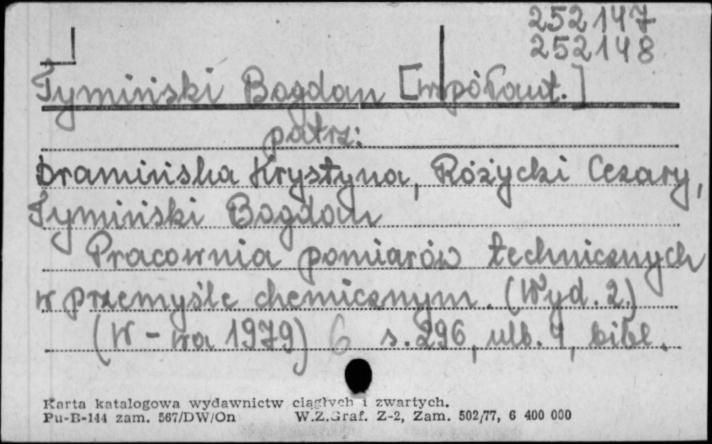 252147
252148
Tymiński Bogdan [współaut.]
patrz:
Dramińska Krystyna, Różycki Cezary,
Tymiński Bogdan
Pracownia pomiarów technicznych
w przemyśle chemicznym. (Wyd. 2.)
(W-wa 1979) 6 s. 296, ulb. 4, bibl.
Karta katalogowa wydawnictw ciągłych i zwartych.
Pu-B-144 zam. 567/DW/On W.Z.Graf. Z-2, Zam. 502/77, 6 400 000